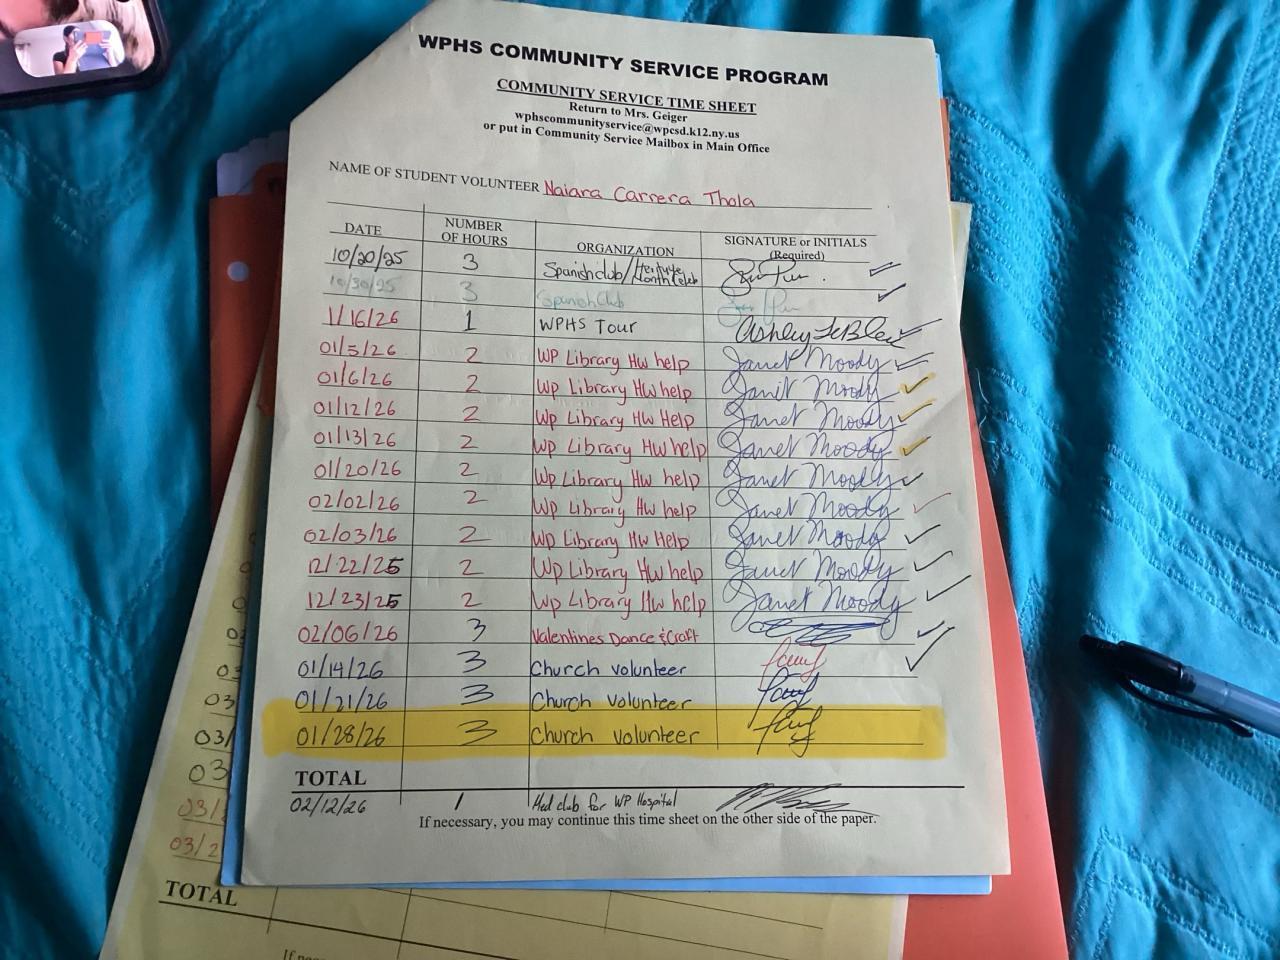 WPHS COMMUNITY SERVICE PROGRAM
COMMUNITY SERVICE TIME SHEET
Return to Mrs. Geiger
wphscommunityservice@wpcsd.k12.ny.us
or put in Community Service Mailbox in Main Office
NAME OF STUDENT VOLUNTEER Naiara Carrera Thola
DATE NUMBER OF HOURS ORGANIZATION SIGNATURE or INITIALS (Required)
10/20/25 3 Spanish club/Heritage Month Celeb
10/30/25 3 Spanish Club
1/16/26 1 WPHS Tour Ashley LeBlen
01/5/26 2 WP Library Hw help Janet Moody
01/6/26 2 Wp Library Hw help Janet Moody
01/12/26 2 Wp Library Hw Help Janet Moody
01/13/26 2 Wp Library Hw help Janet Moody
01/20/26 2 Wp Library Hw help Janet Moody
02/02/26 2 Wp Library Hw help Janet Moody
02/03/26 2 Wp Library Hw Help Janet Moody
12/22/25 2 Wp Library Hw help Janet Moody
12/23/25 2 Wp Library Hw help Janet Moody
02/06/26 3 Valentines Dance & Craft
01/14/26 3 Church volunteer
01/21/26 3 Church volunteer
01/28/26 3 Church volunteer
TOTAL
02/12/26 1 Med club for WP Hospital
If necessary, you may continue this time sheet on the other side of the paper.
03
03
03/
03
03/2
03/2
TOTAL